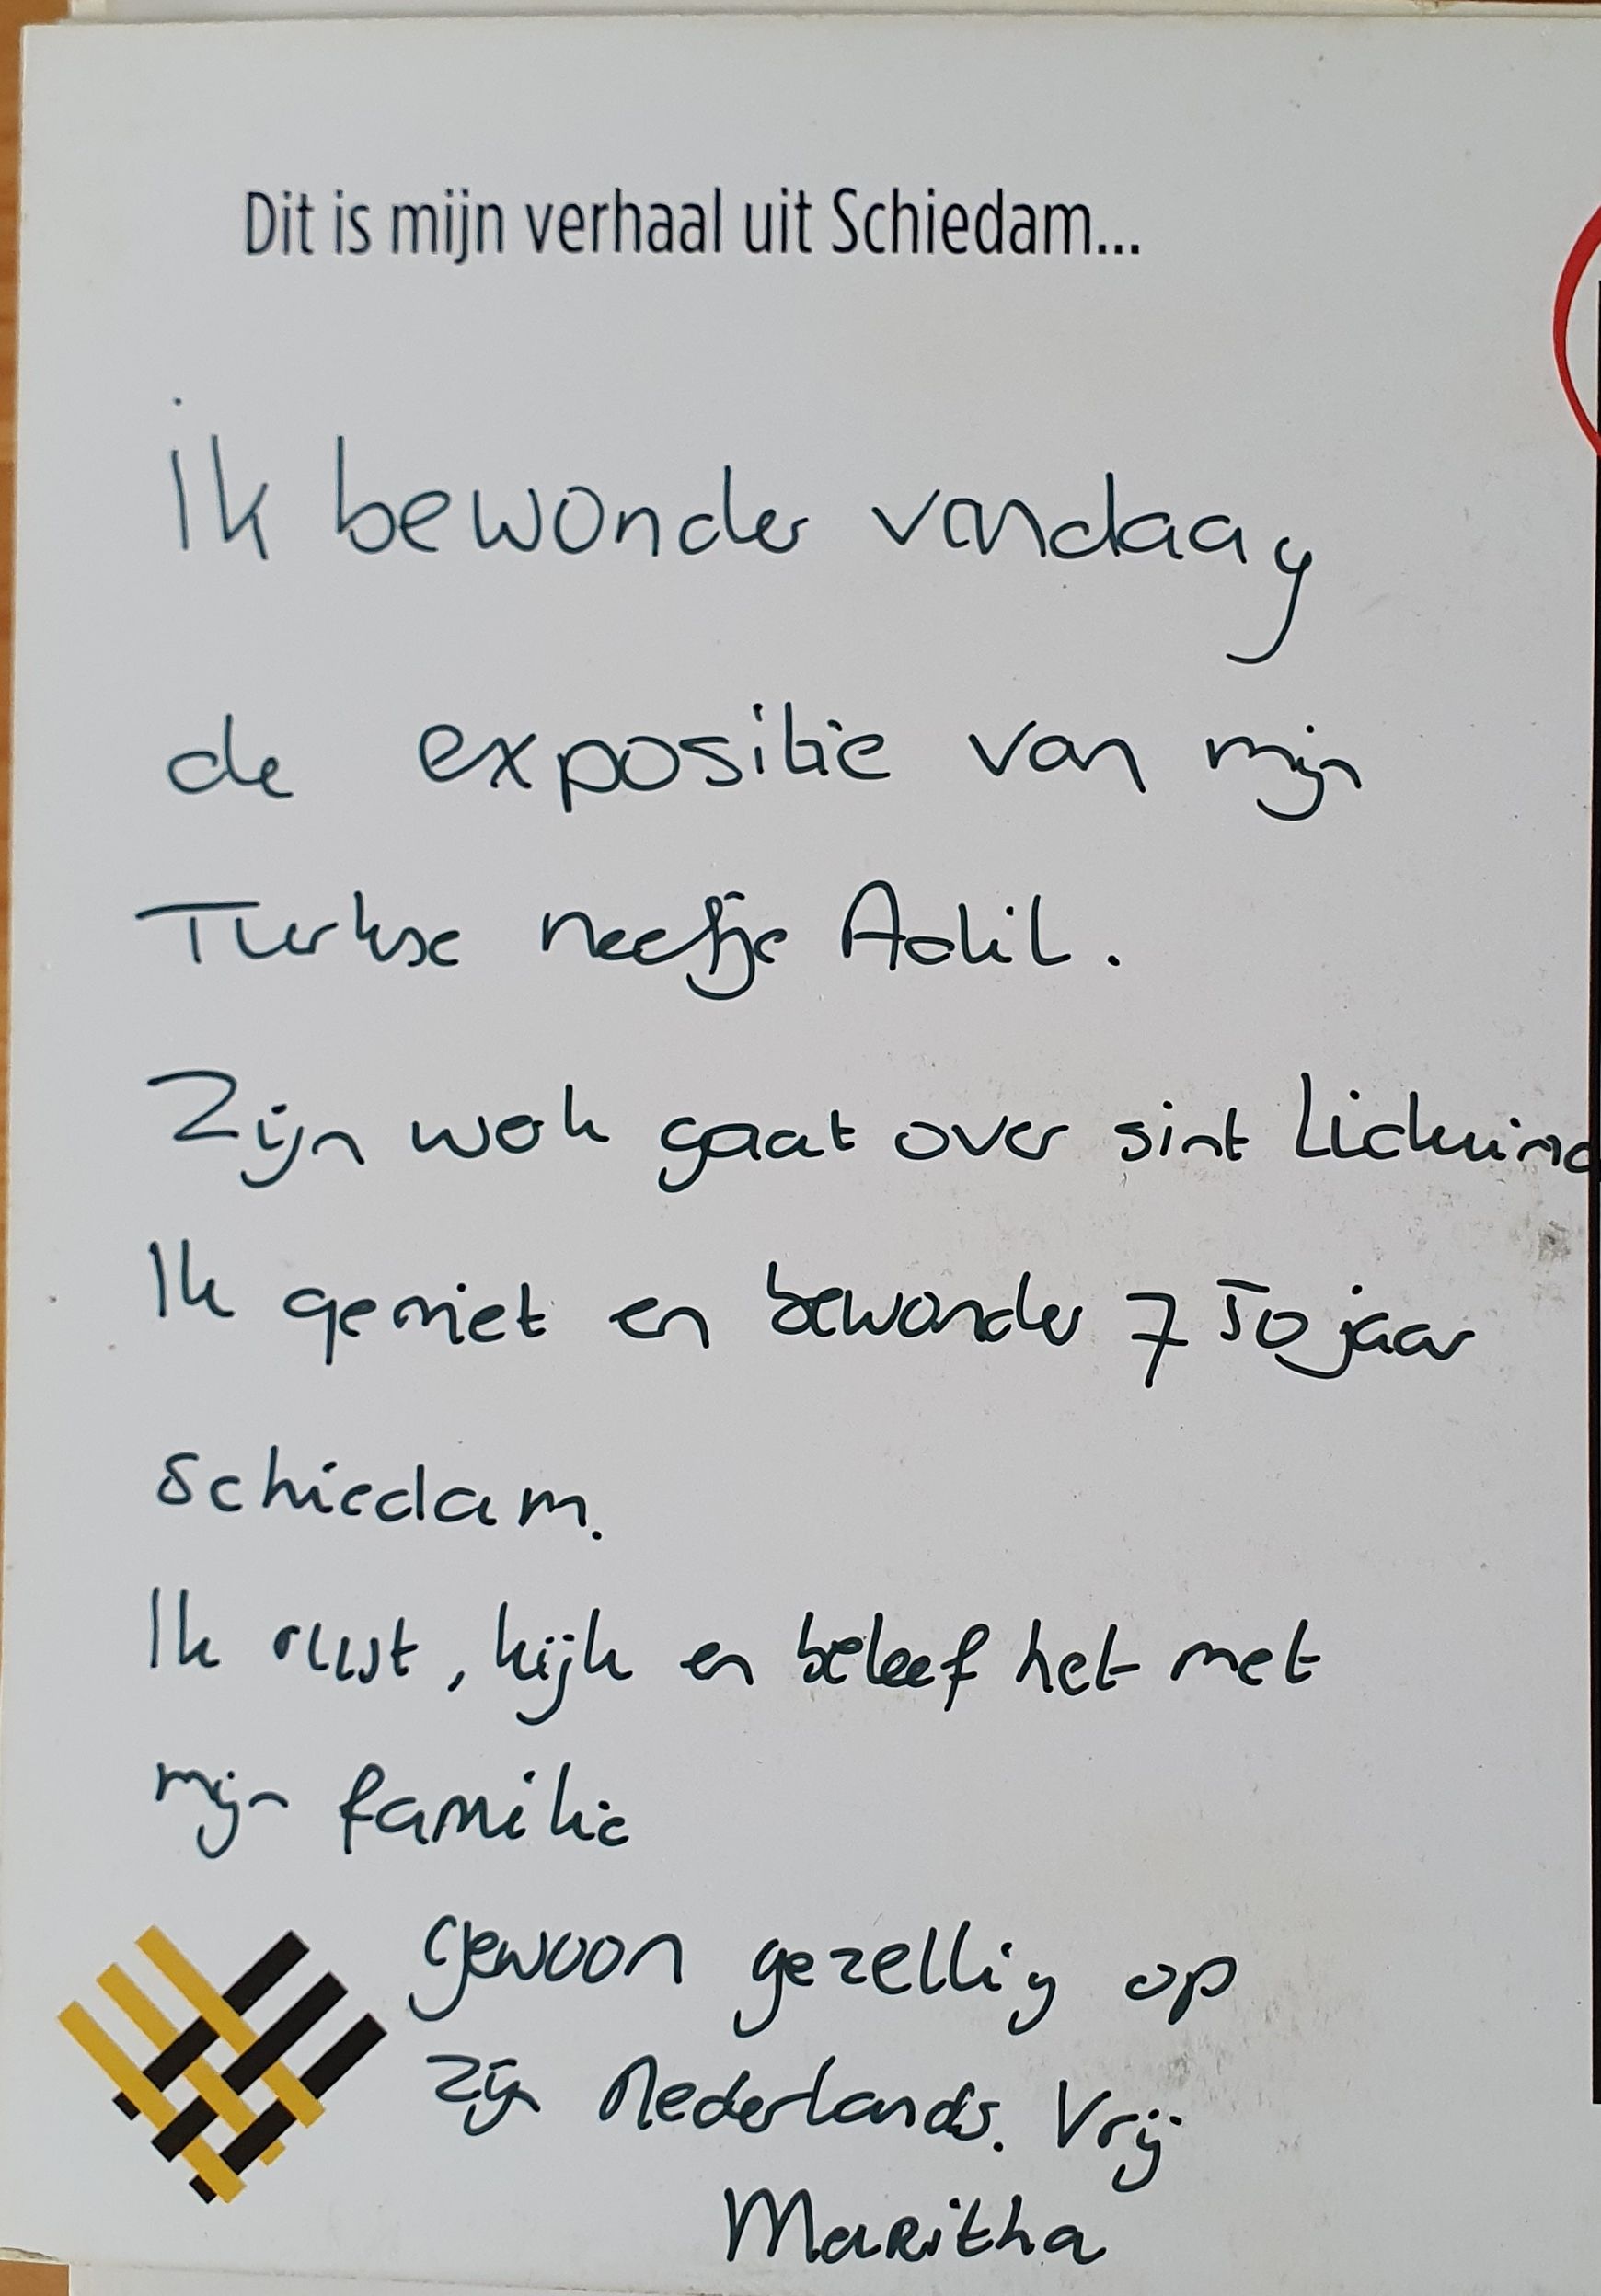 Dit is mijn verhaal uit Schiedam...
Ik bewonder vandaag
de expositie van mijn
Turkse neefje Adil.
Zijn werk gaat over sint
Ik geniet en bewonder 750 jaar
Schiedam.
Ik rust, kijk en beleef het met
mijn familie
gewoon gezellig op
zijn Nederlands. Vrij
Maritha